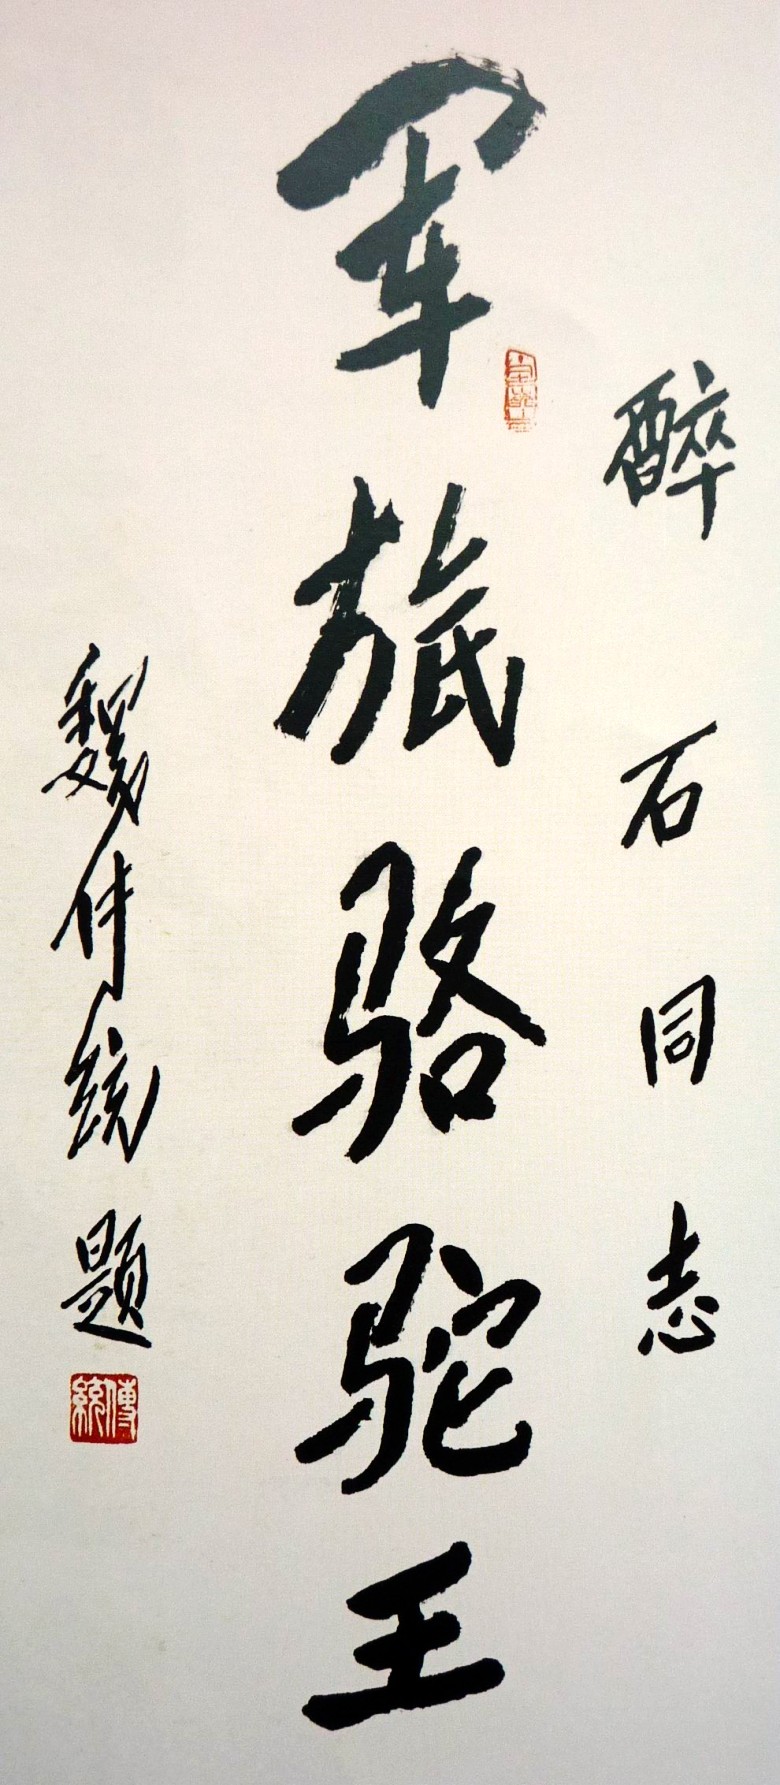 醉石同志
军旅骆驼王
魏传统题
傳統